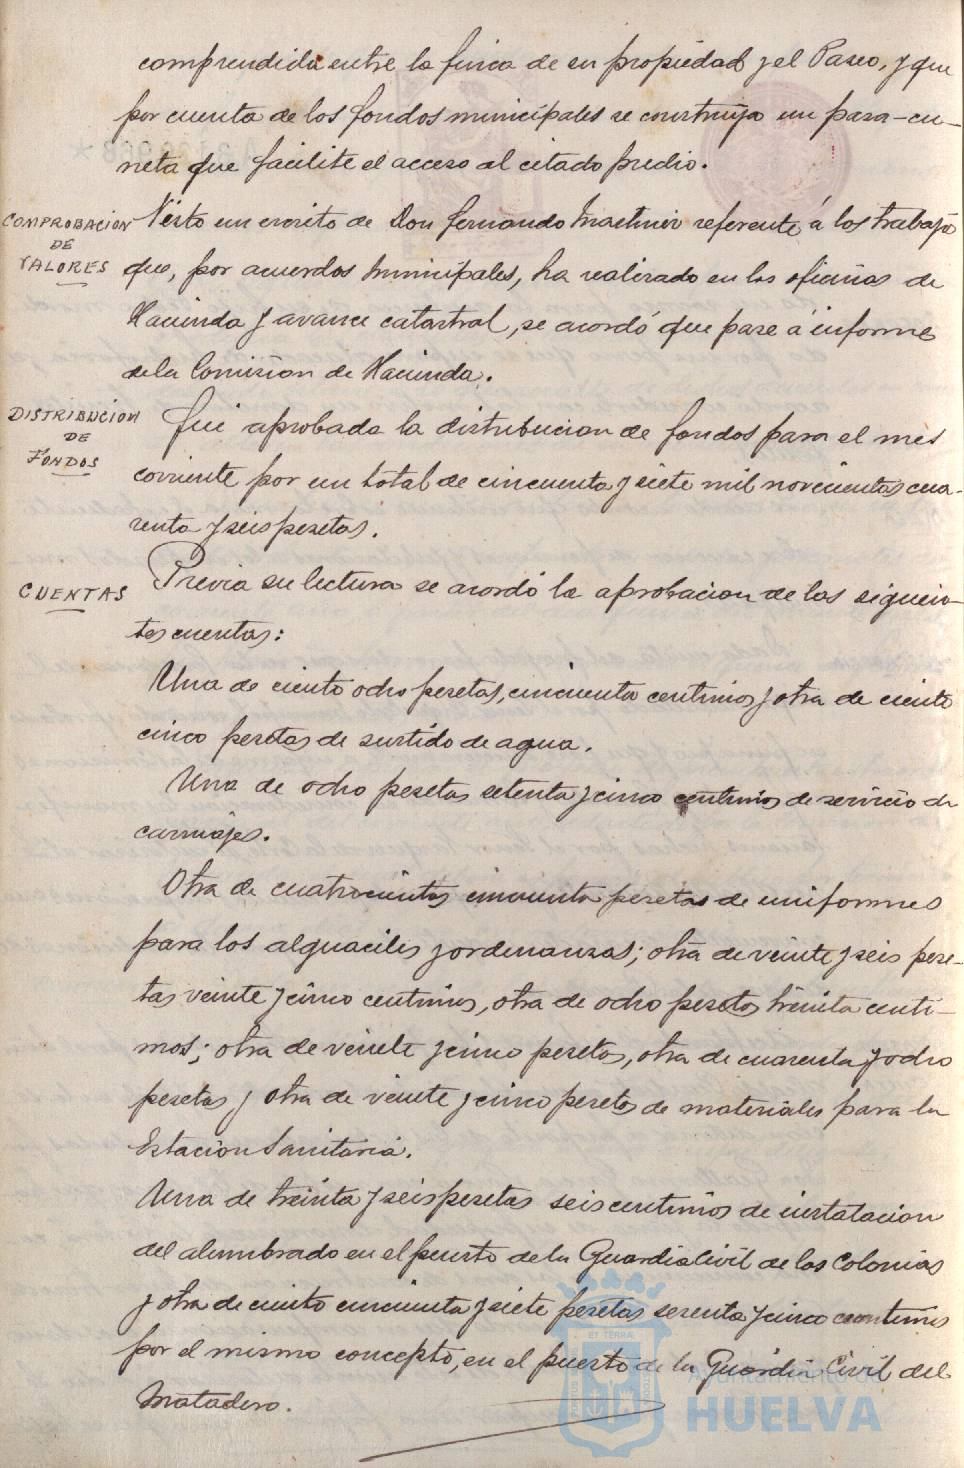 comprendida entre la finca de su propiedad y el Paseo, y que
por cuenta de los fondos municipales se construya un pasa-cu-
neta que facilite el acceso al citado predio.
COMPROBACION
DE
VALORES
Visto un escrito de Don Fernando Martinez referente á los trabajos
que, por acuerdos municipales, ha realizado en las oficinas de
Hacienda y avance catastral, se acordó que pase a informe
de la Comision de Hacienda.
DISTRIBUCION
DE
FONDOS
Fué aprobada la distribucion de fondos para el mes
corriente por un total de cincuenta y siete mil novecientas cua-
renta y seis pesetas.
CUENTAS
Previa su lectura se acordó la aprobacion de las siguien-
tes cuentas:
Una de ciento ocho pesetas, cincuenta centimos y otra de ciento
cinco pesetas de surtido de agua.
Una de ocho pesetas setenta y cinco centimos de servicio de
carruajes.
Otra de cuatrocientas cincuenta pesetas de uniformes
para los alguaciles y ordenanzas; otra de veinte y seis pese-
tas veinte y cinco centimos, otra de ocho pesetas treinta centi-
mos; otra de veinte y cinco pesetas, otra de cuarenta y ocho
pesetas y otra de veinte y cinco pesetas de materiales para la
Estacion Sanitaria.
Una de treinta y seis pesetas seis centimos de instalacion
del alumbrado en el puesto de la Guardia Civil de las Colonias
y otra de ciento cincuenta y siete pesetas sesenta y cinco centimos
por el mismo concepto, en el puesto de la Guardia Civil del
Matadero.
Ayuntamiento de
HUELVA